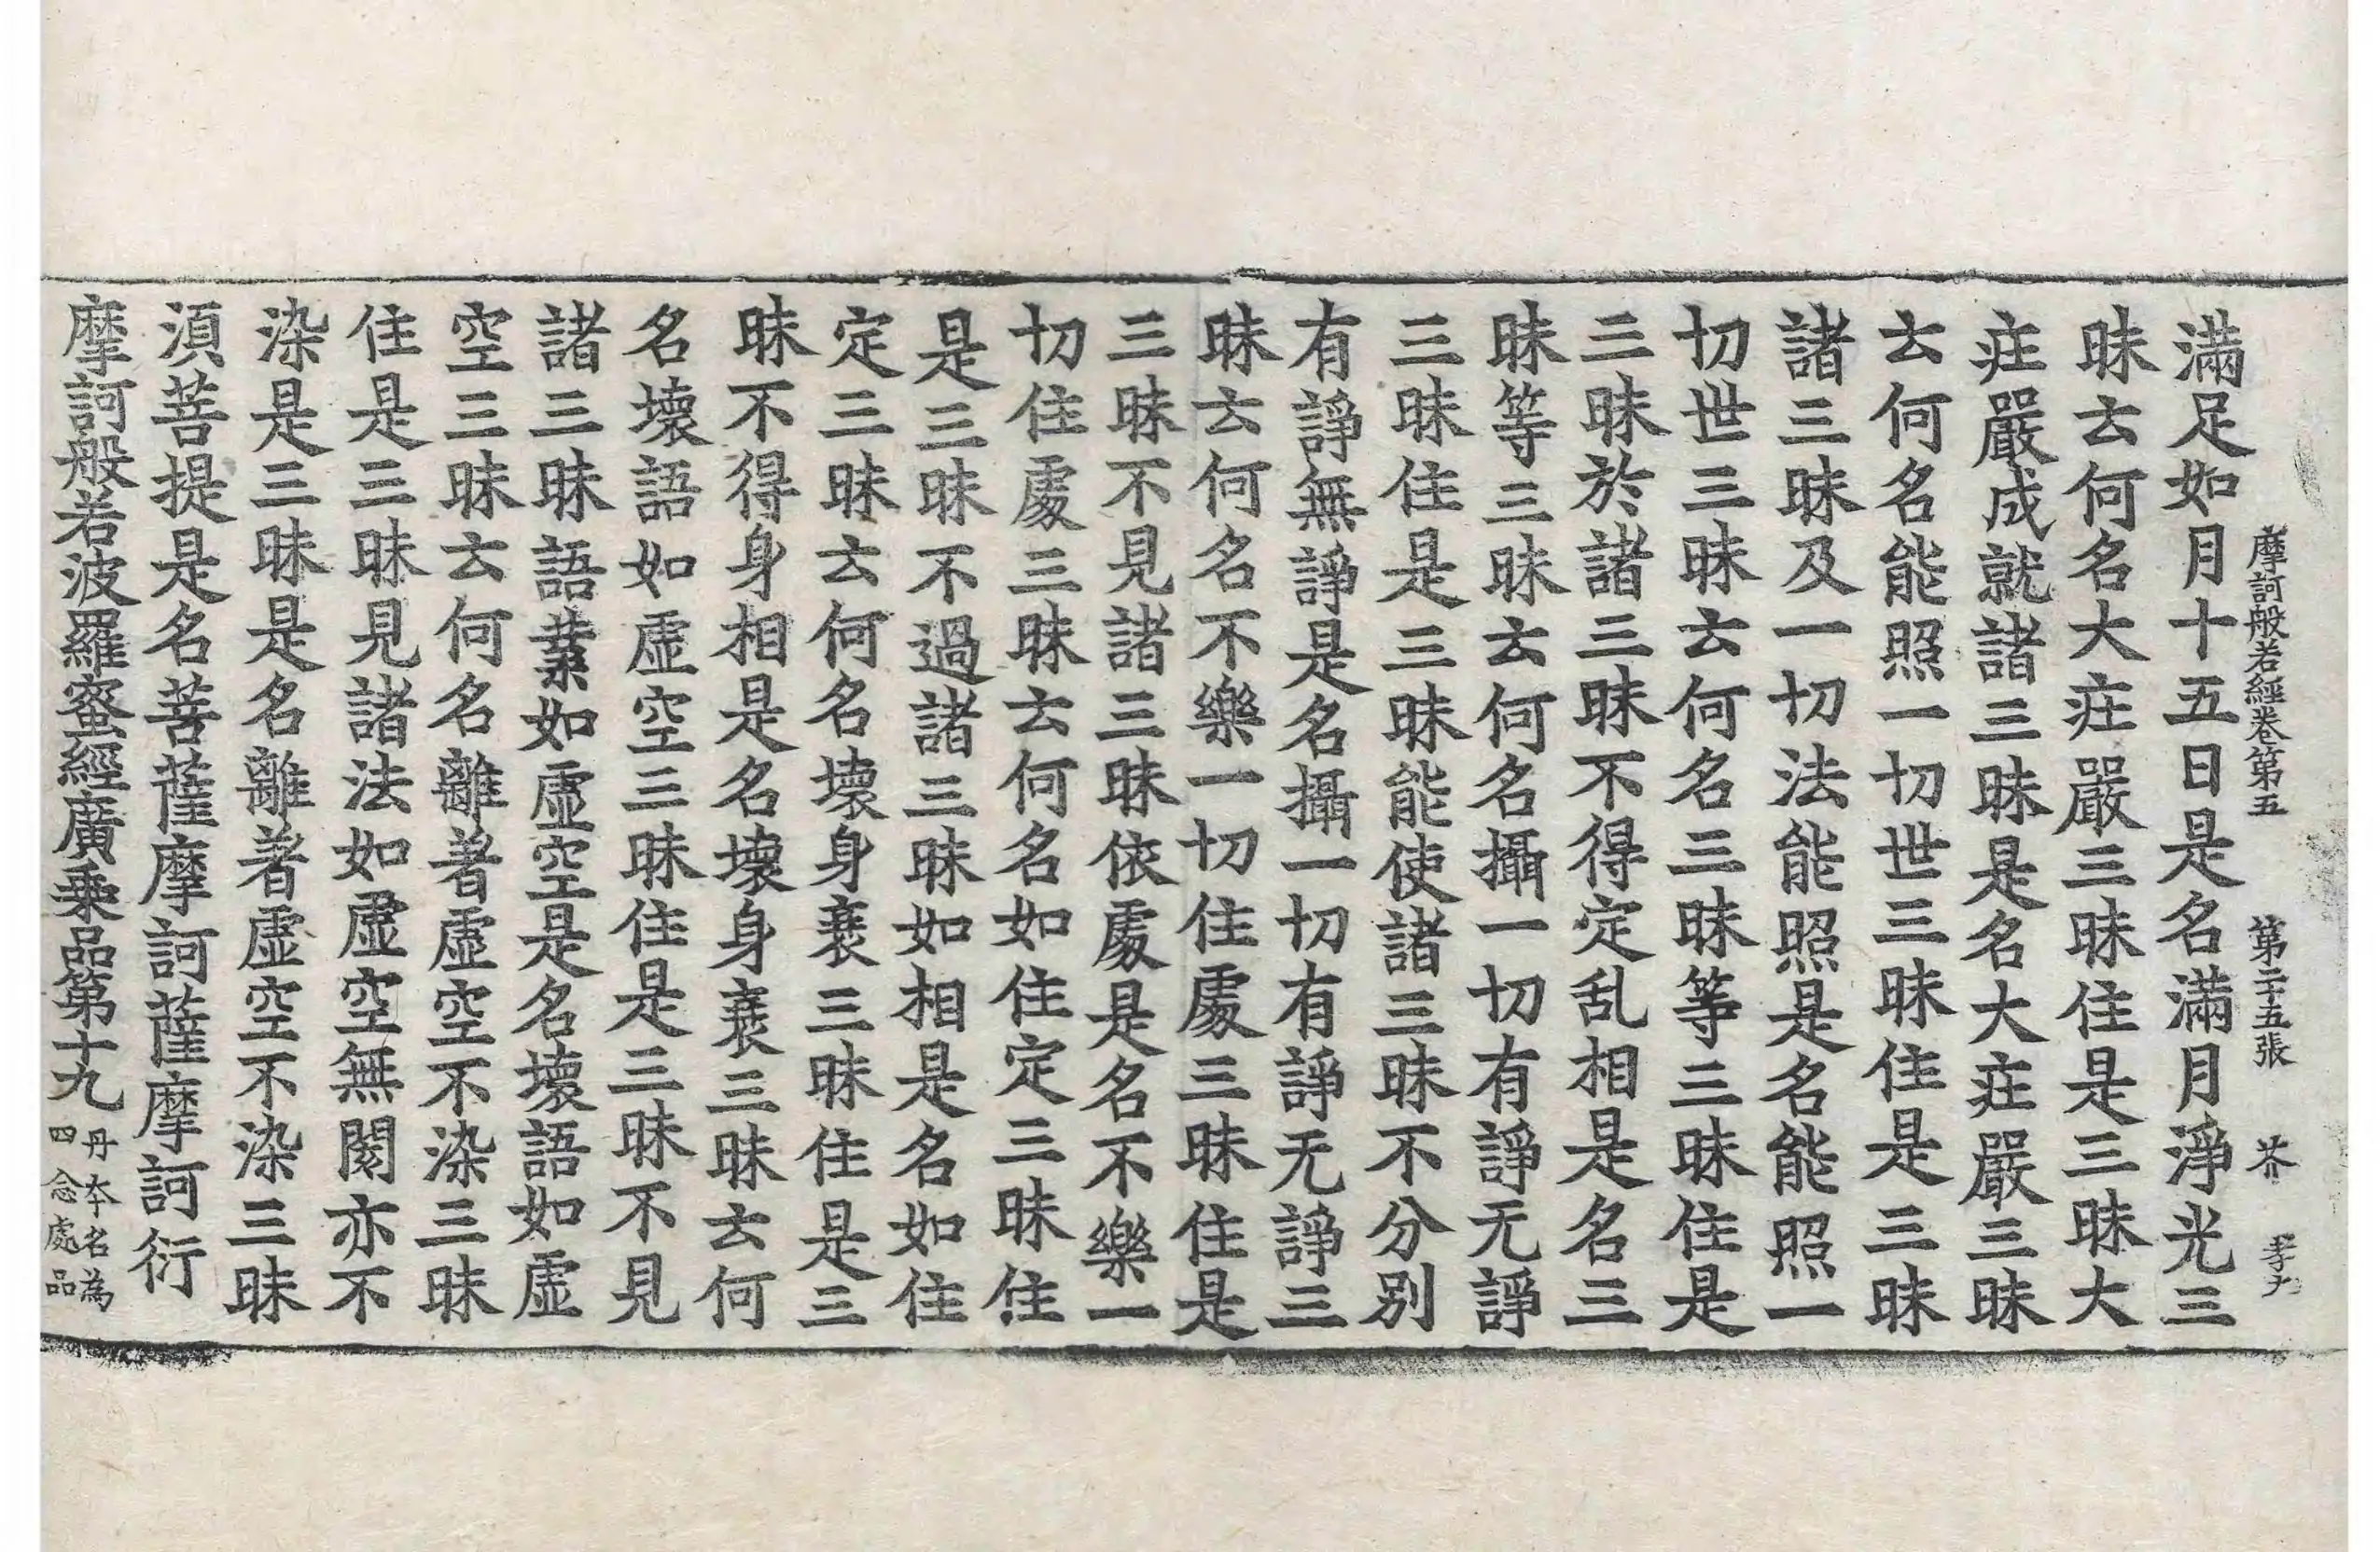 摩訶般若經卷第五　第二十五張　芥　孝大
滿足如月十五日是名滿月淨光三
昧云何名大疰嚴三昧住是三昧大
疰嚴成就諸三昧是名大疰嚴三昧
云何名能照一切世三昧住是三昧
諸三昧及一切法能照是名能照一
切世三昧云何名三昧等三昧住是
三昧於諸三昧不得定乱相是名三
昧等三昧云何名攝一切有諍无諍
三昧住是三昧能使諸三昧不分別
有諍無諍是名攝一切有諍无諍三
昧云何名不樂一切住處三昧住是
三昧不見諸三昧依處是名不樂一
切住處三昧云何名如住定三昧住
是三昧不過諸三昧如相是名如住
定三昧云何名壞身衰三昧住是三
昧不得身相是名壞身衰三昧云何
名壞語如虛空三昧住是三昧不見
諸三昧語業如虛空是名壞語如虛
空三昧云何名離著虛空不染三昧
住是三昧見諸法如虛空無閡亦不
染是三昧是名離著虛空不染三昧
須菩提是名菩薩摩訶薩摩訶衍
摩訶般若波羅蜜經廣乘品第十九 丹本名為四念處品